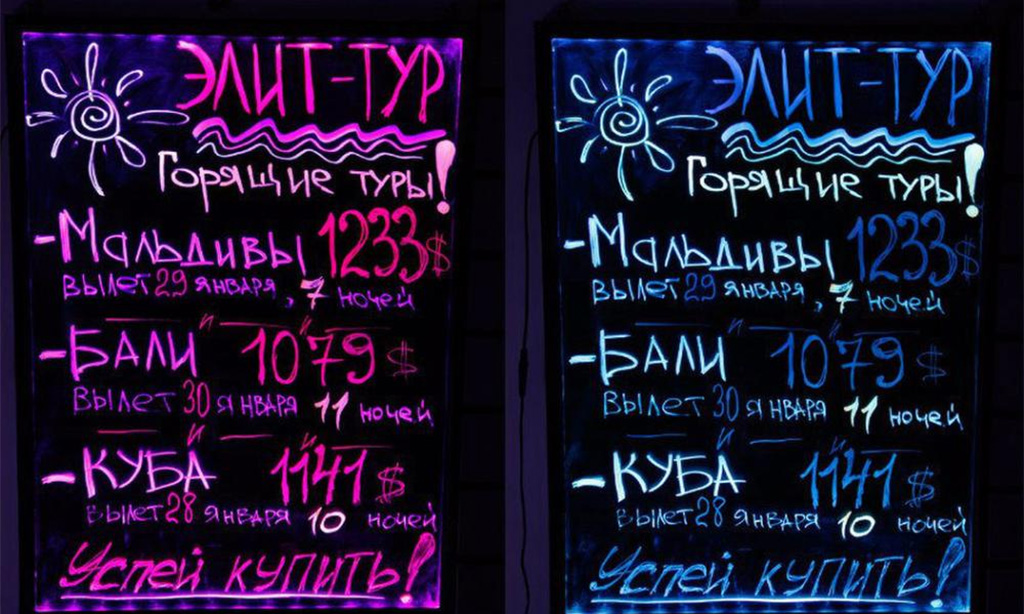 ЭЛИТ-ТУР
Горящие туры!
-Мальдивы 1233$
вылет 29 января, 7 ночей
-БАЛИ 1079 $
вылет 30 января 11 ночей
-КУБА 1141 $
вылет 28 января 10 ночей
Успей купить!
ЭЛИТ-ТУР
Горящие туры!
-Мальдивы 1233$
вылет 29 января, 7 ночей
-БАЛИ 1079 $
вылет 30 января 11 ночей
-КУБА 1141 $
вылет 28 января 10 ночей
Успей купить!